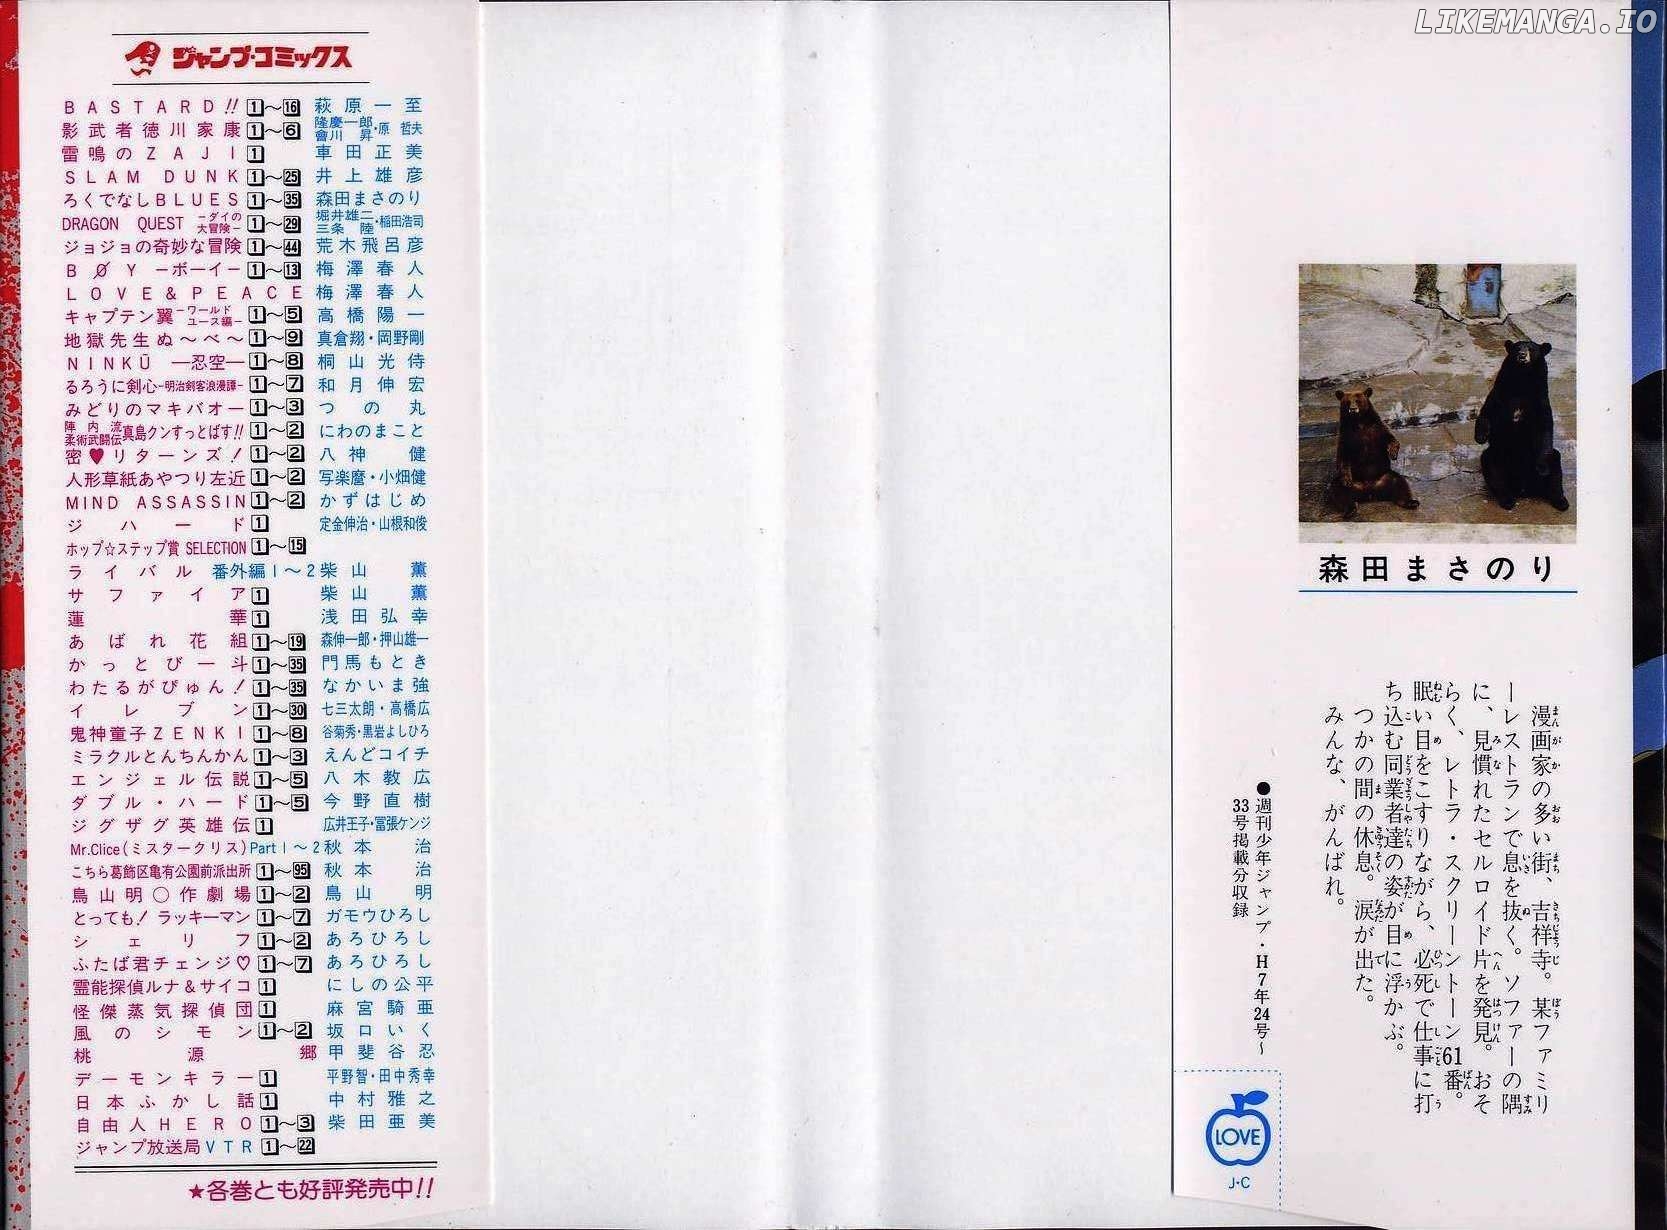 LIKEMANGA.IO
ジャンプ・コミックス
BASTARD!! 1〜16 萩原一至
影武者徳川家康 1〜6 隆慶一郎 會川昇・原哲夫
雷鳴のZAJI 1 車田正美
SLAM DUNK 1〜25 井上雄彦
ろくでなしBLUES 1〜35 森田まさのり
DRAGON QUEST −ダイの大冒険− 1〜29 堀井雄二 三条陸・稲田浩司
ジョジョの奇妙な冒険 1〜44 荒木飛呂彦
BØY −ボーイ− 1〜13 梅澤春人
LOVE&PEACE 梅澤春人
キャプテン翼 −ワールドユース編− 1〜5 高橋陽一
地獄先生ぬ〜べ〜 1〜9 真倉翔・岡野剛
NINKŪ —忍空— 1〜8 桐山光侍
るろうに剣心−明治剣客浪漫譚− 1〜7 和月伸宏
みどりのマキバオー 1〜3 つの丸
陣内流柔術武闘伝 真島クンすっとばす!! 1〜2 にわのまこと
密♥リターンズ! 1〜2 八神健
人形草紙あやつり左近 1〜2 写楽麿・小畑健
MIND ASSASSIN 1〜2 かずはじめ
ジハード 1 定金伸治・山根和俊
ホップ☆ステップ賞 SELECTION 1〜15
ライバル 番外編1〜2 柴山薫
サファイア 1 柴山薫
蓮華 1 浅田弘幸
あばれ花組 1〜19 森伸一郎・押山雄一
かっとび一斗 1〜35 門馬もとき
わたるがぴゅん! 1〜35 なかいま強
イレブン 1〜30 七三太朗・高橋広
鬼神童子ZENKI 1〜8 谷菊秀・黒岩よしひろ
ミラクルとんちんかん 1〜3 えんどコイチ
エンジェル伝説 1〜5 八木教広
ダブル・ハード 1〜5 今野直樹
ジグザグ英雄伝 1 広井王子・冨張ケンジ
Mr.Clice(ミスタークリス) Part 1〜2 秋本治
こちら葛飾区亀有公園前派出所 1〜95 秋本治
鳥山明〇作劇場 1〜2 鳥山明
とっても!ラッキーマン 1〜7 ガモウひろし
シェリフ 1〜2 あろひろし
ふたば君チェンジ♡ 1〜7 あろひろし
霊能探偵ルナ&サイコ 1 にしの公平
怪傑蒸気探偵団 1 麻宮騎亜
風のシモン 1〜2 坂口いく
桃源郷 甲斐谷忍
デーモンキラー 1 平野智・田中秀幸
日本ふかし話 1 中村雅之
自由人HERO 1〜3 柴田亜美
ジャンプ放送局VTR 1〜22
★各巻とも好評発売中!!
森田まさのり
漫画家の多い街、吉祥寺。某ファミリ
ーレストランで息を抜く。ソファーの隅
に、見慣れたセルロイド片を発見。おそ
らく、レトラ・スクリーントーン61番。
眠い目をこすりながら、必死で仕事に打
ち込む同業者達の姿が目に浮かぶ。
つかの間の休息。涙が出た。
みんな、がんばれ。
●週刊少年ジャンプ・H7年24号〜
33号掲載分収録
LOVE
J・C